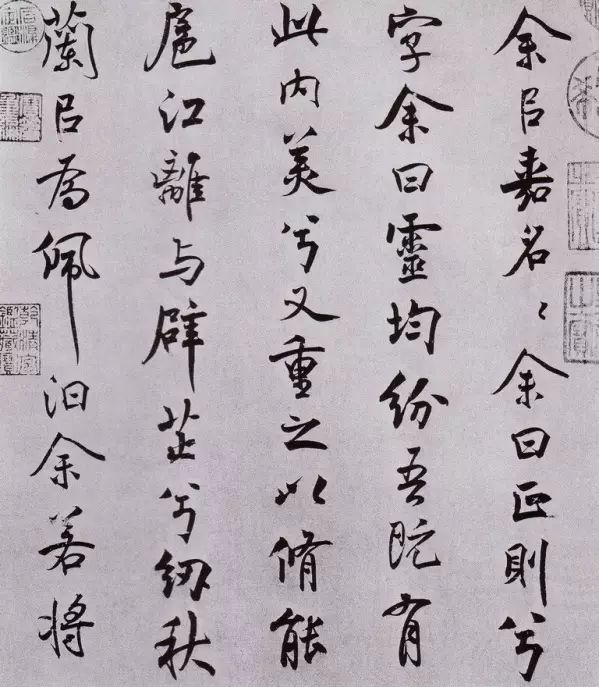 余㠯嘉名〻余曰正則兮
字余曰靈均紛吾既有
此內美兮又重之以脩能
扈江離与辟芷兮紉秋
蘭㠯為佩汩余若將